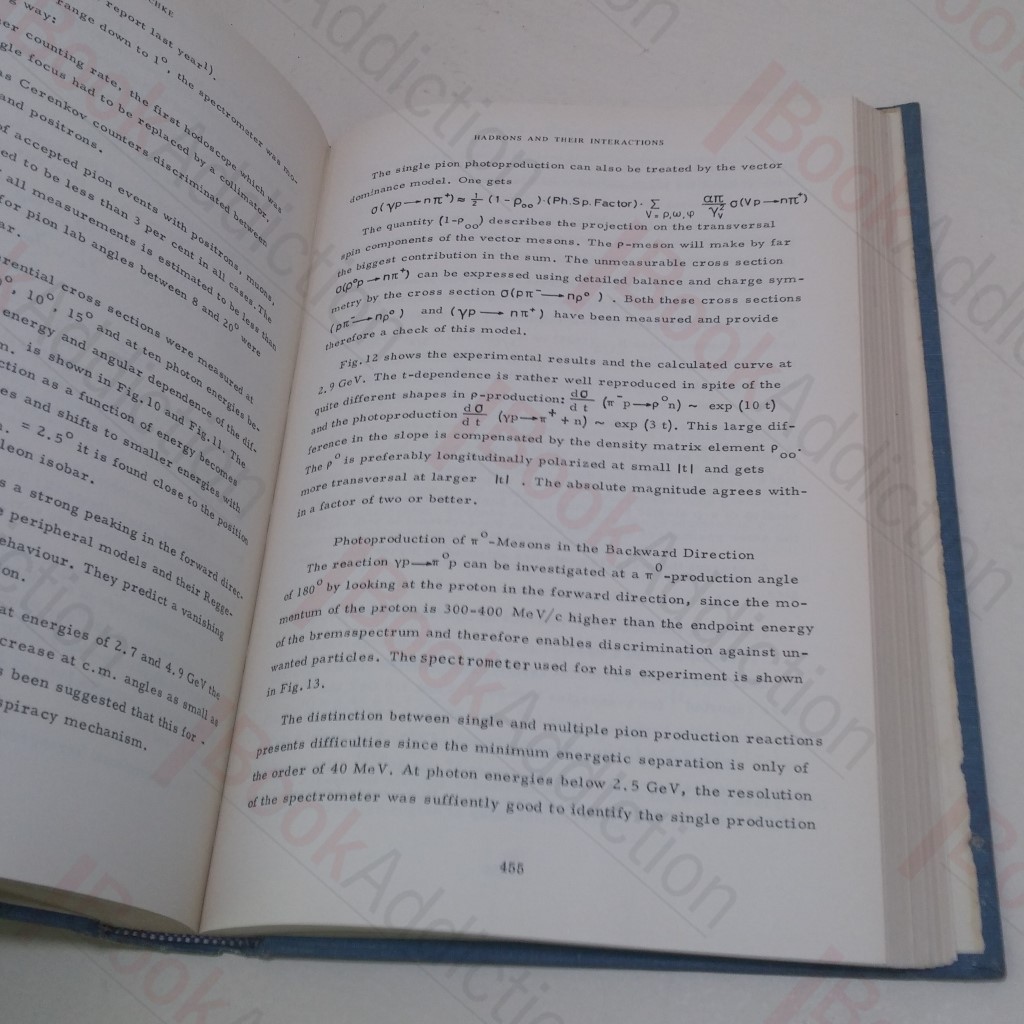 CHKE
report last year!).
range down to 1°, the spectrometer was mo-
g way:
er counting rate, the first hodoscope which was
gle focus had to be replaced by a collimator.
as Cerenkov counters discriminated between
and positrons.
of accepted pion events with positrons, muons,
ed to be less than 3 per cent in all cases. The
all measurements is estimated to be less than
for pion lab angles between 8 and 20° were
ar.
rential cross sections were measured at
0°, 10°, 15° and at ten photon energies be-
energy and angular dependence of the dif-
m. is shown in Fig. 10 and Fig. 11. The
ction as a function of energy becomes
es and shifts to smaller energies with
. = 2.5° it is found close to the position
leon isobar.
s a strong peaking in the forward direc-
e peripheral models and their Regge-
ehaviour. They predict a vanishing
on.
at energies of 2.7 and 4.9 GeV the
crease at c.m. angles as small as
s been suggested that this for-
spiracy mechanism.
HADRONS AND THEIR INTERACTIONS
The single pion photoproduction can also be treated by the vector
dominance model. One gets
σ(γp→nπ⁺) ≈ ½ (1-ρ₀₀)·(Ph.Sp.Factor)· Σ V=ρ,ω,φ απ/γ²ᵥ σ(Vp→nπ⁺)
The quantity (1-ρ₀₀) describes the projection on the transversal
spin components of the vector mesons. The ρ-meson will make by far
the biggest contribution in the sum. The unmeasurable cross section
σ(ρ⁰p→nπ⁺) can be expressed using detailed balance and charge sym-
metry by the cross section σ(pπ⁻→nρ⁰). Both these cross sections
(pπ⁻→nρ⁰) and (γp→nπ⁺) have been measured and provide
therefore a check of this model.
Fig. 12 shows the experimental results and the calculated curve at
2.9 GeV. The t-dependence is rather well reproduced in spite of the
quite different shapes in ρ-production: dσ/dt (π⁻p→ρ⁰n) ~ exp (10 t)
and the photoproduction dσ/dt (γp→π⁺ + n) ~ exp (3 t). This large dif-
ference in the slope is compensated by the density matrix element ρ₀₀.
The ρ⁰ is preferably longitudinally polarized at small |t| and gets
more transversal at larger |t| . The absolute magnitude agrees with-
in a factor of two or better.
Photoproduction of π⁰-Mesons in the Backward Direction
The reaction γp→π⁰p can be investigated at a π⁰-production angle
of 180° by looking at the proton in the forward direction, since the mo-
mentum of the proton is 300-400 MeV/c higher than the endpoint energy
of the bremsspectrum and therefore enables discrimination against un-
wanted particles. The spectrometer used for this experiment is shown
in Fig. 13.
The distinction between single and multiple pion production reactions
presents difficulties since the minimum energetic separation is only of
the order of 40 MeV. At photon energies below 2.5 GeV, the resolution
of the spectrometer was suffiently good to identify the single production
455
BookAddiction